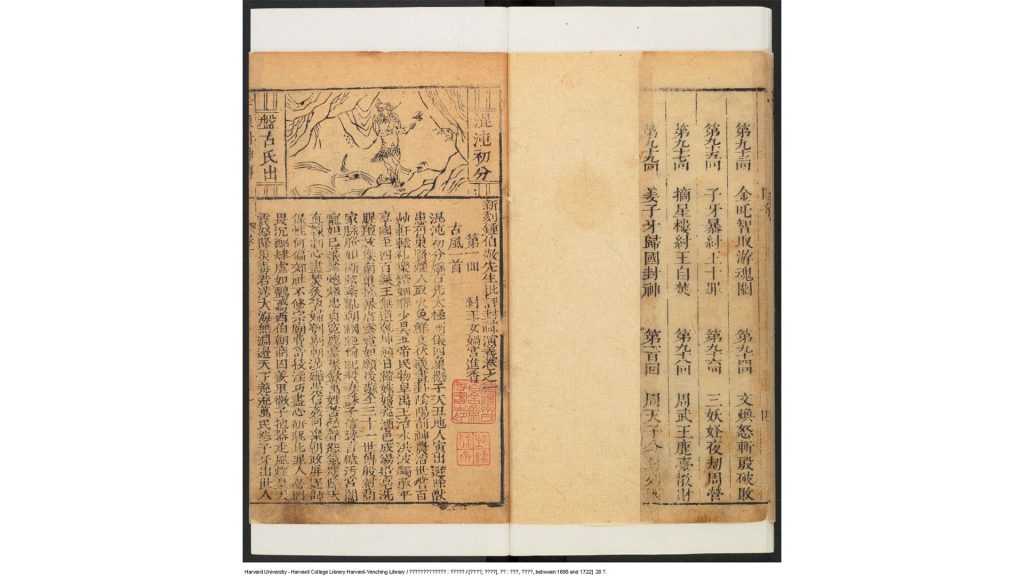 第九十三回 金吒智取游魂關 第九十四回 文煥怒斬殷破敗
第九十五回 子牙暴紂王十罪 第九十六回 三妖夜劫周營
第九十七回 摘星樓紂王自焚 第九十八回 周武王鹿臺散財
第九十九回 姜子牙歸國封神 第一百回 周天子
混沌初分
盤古氏出
新刻鍾伯敬先生批評封神演義卷之一
第一回 紂王女媧宮進香
古風一首
混沌初分盤古先太極兩儀四象懸子天丑地人寅出避除獸
患有巢賢燧人取火免鮮食伏羲畫卦陰陽前神農治世嚐百
草軒轅禮樂婚姻聯少昊五帝民物阜禹王治水洪波蠲承平
享國至四百桀王無道乾坤顛日縱妹喜荒酒色成湯造亳洗
腥羶放桀南巢拯暴虐雲霓如願後蘇全三十一世傳殷紂商
家脈絡如斷弦紊亂朝綱絕倫紀殺妻誅子信讒言穢污宮闈
寵妲己蠆盆炮烙忠貞冤鹿臺聚斂萬姓苦愁聲怨氣應障天
直諫剖心盡焚炙孕婦刳剔朝涉殲崇信姦回棄朝政屏逐師
保性何偏郊社不修宗廟費奇技淫巧盡心研昵比罪人乃罔
畏沉酗肆虐如鸇鳶西伯朝商囚羑里微子抱器走風煙皇天
震怒降災毒若涉大海無淵邊天下荒荒萬民怨子牙出世人
Harvard University - Harvard College Library Harvard-Yenching Library / ????????????? : ????? /[????, ????]. ?? : ???, ????, between 1695 and 1722]. 20 ?.